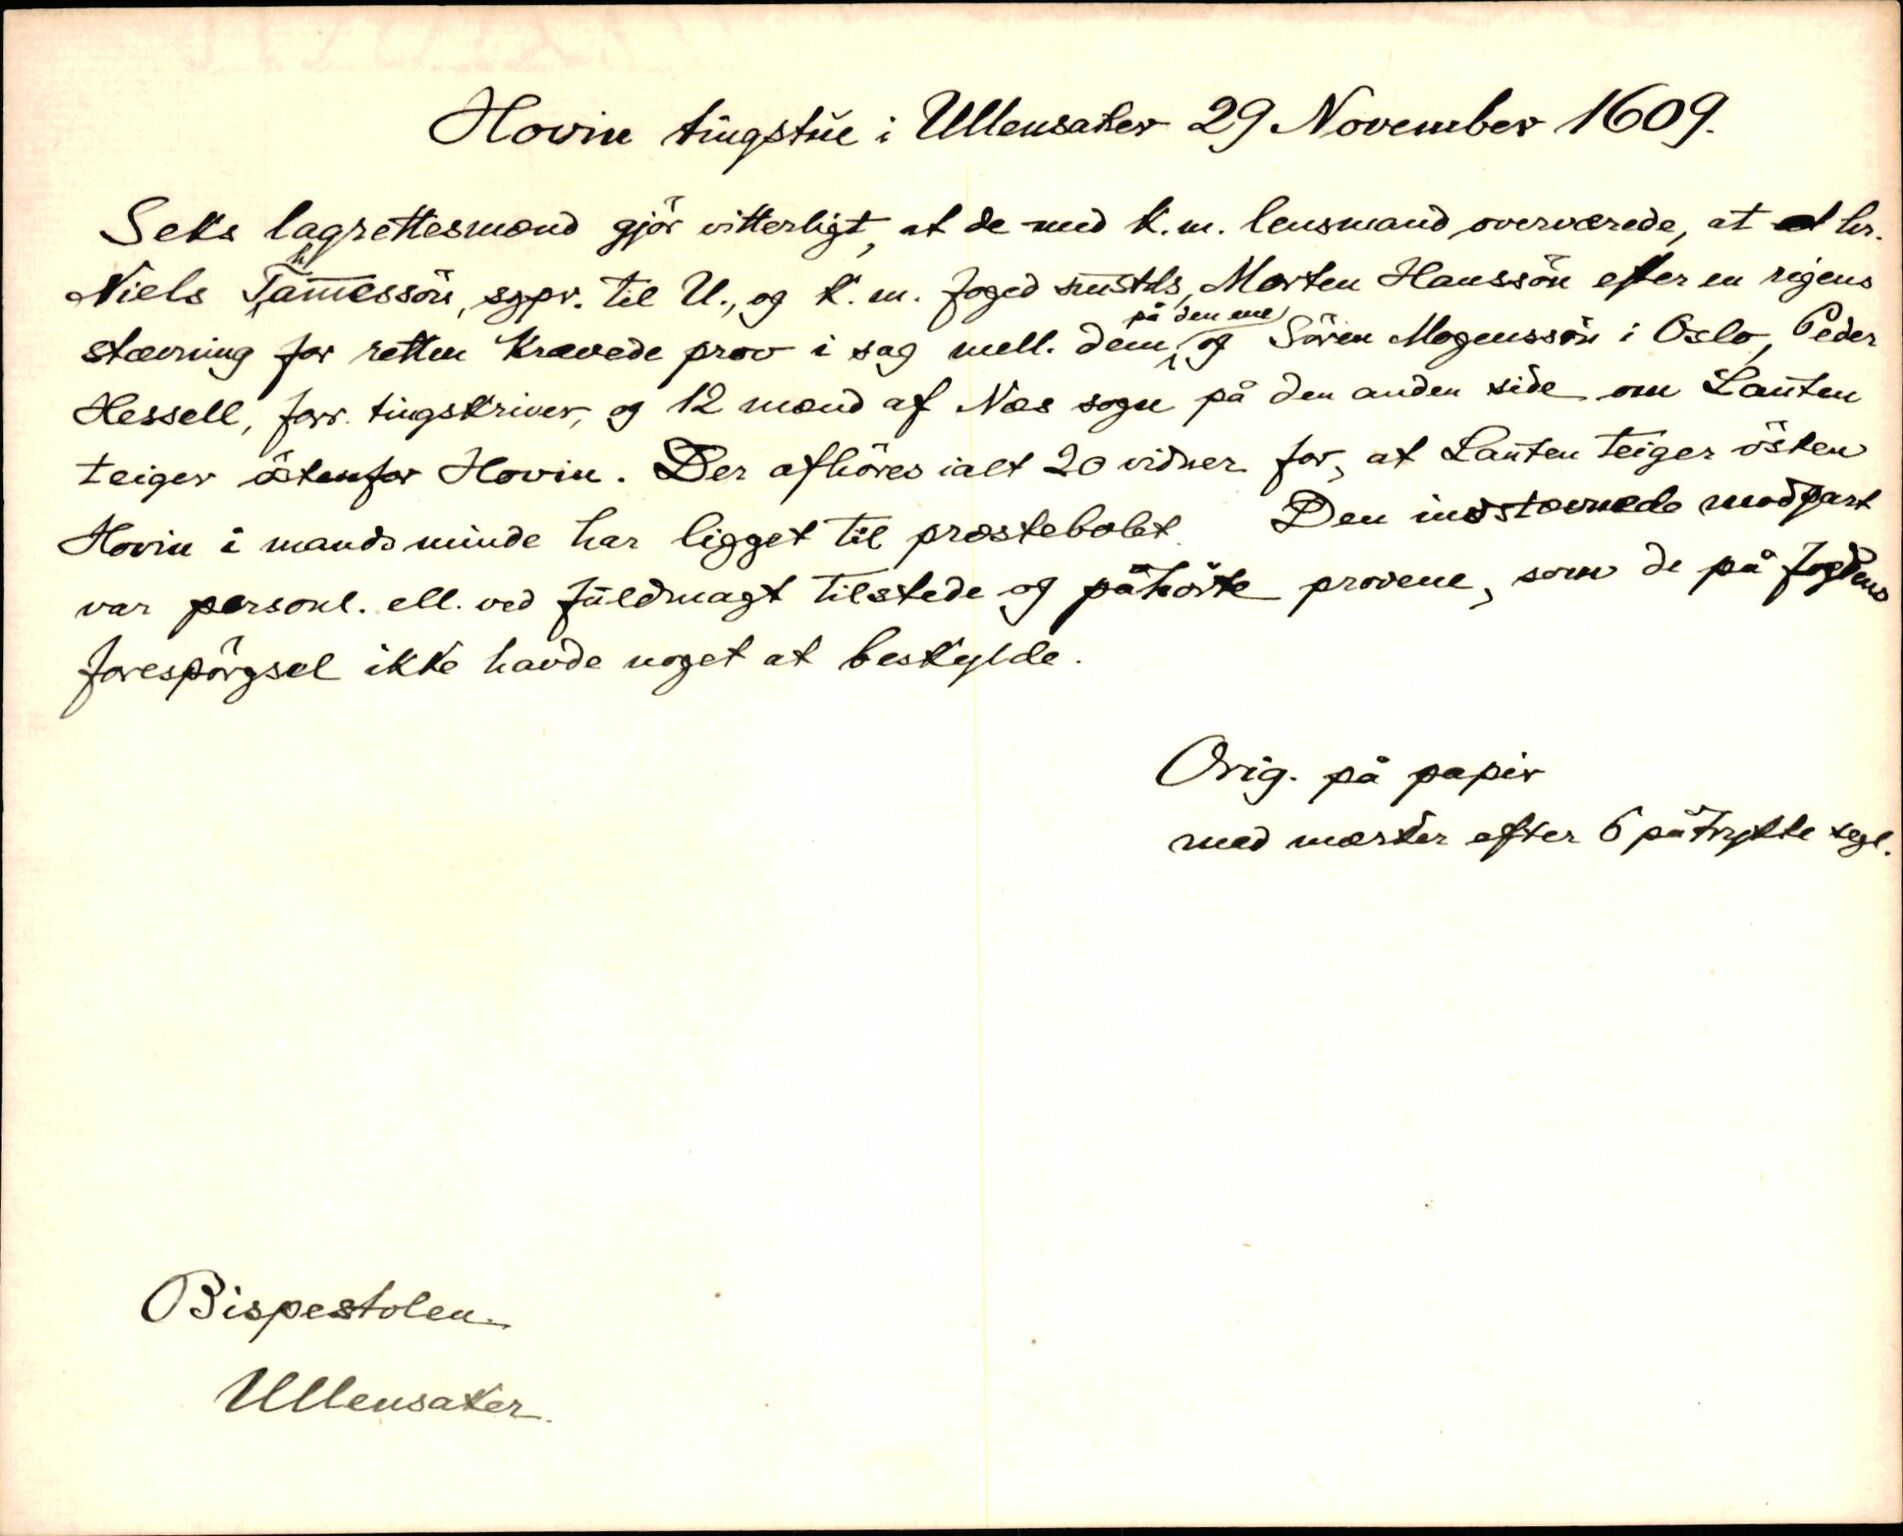 Hovin tingstue i Ullensaker 29 November 1609.
Seks lagrettesmænd gjör vitterligt, at de med k. m. lensmand overværede, at hr.
Niels Thamessön, sgpr. til U., og k. m. foged smstds, Morten Hanssön efter en rigens
stævning for retten krævede prov i sag mell. dem på den ene og Sören Mogenssön i Oslo, Peder
Hessell, forr. tingskriver, og 12 mænd af Næs sogn på den anden side om Lauten
teiger östenfor Hovin. Der afhöres ialt 20 vidner for, at Lauten teiger östen
Hovin i mands minde har ligget til præstebolet. Den indstævnede modpart
var personl. ell. ved fuldmagt tilstede og påhörte provene, som de på fogdens
forespörgsel ikke havde noget at beskylde.
Orig. på papir
med mærker efter 6 påtrykte segl.
Bispestolen.
Ullensaker.